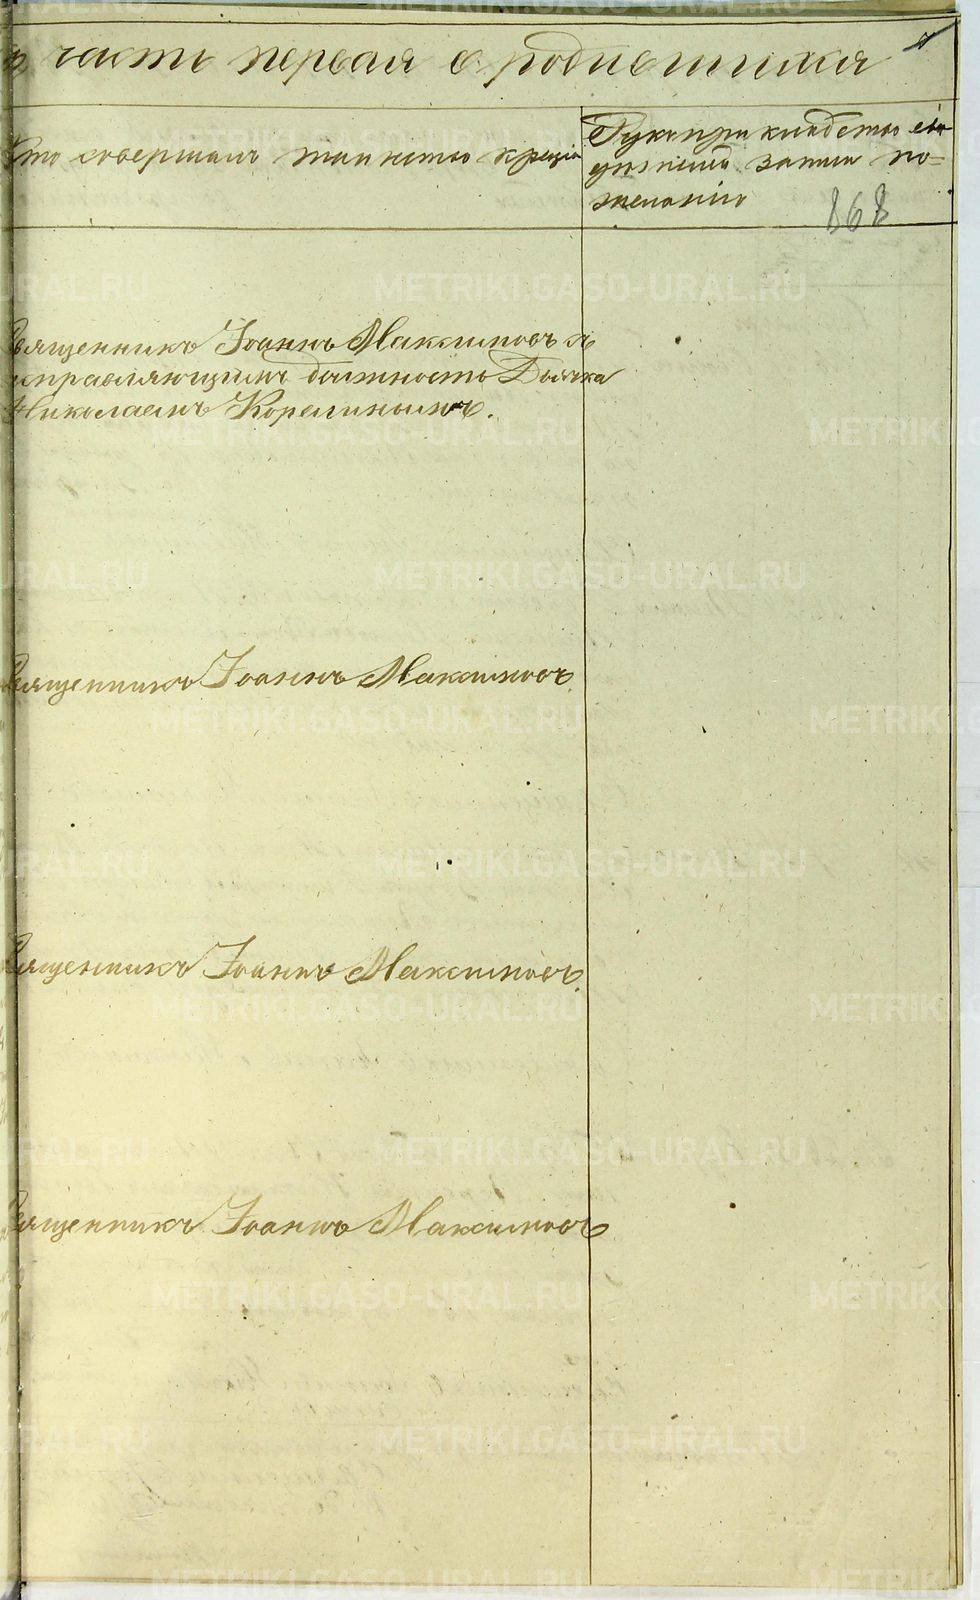 часть первая о родившихся
Кто совершалъ таинство крещен
Рукоприкладство сви
записи по=
желанію
868
Священникъ Іоаннъ Максимовъ съ
исправляющимъ должность Дьячка
Николаемъ Корелинымъ.
Священникъ Іоаннъ Максимовъ.
Священникъ Іоаннъ Максимовъ.
Священникъ Іоаннъ Максимовъ
METRIKI.GASO-URAL.RU